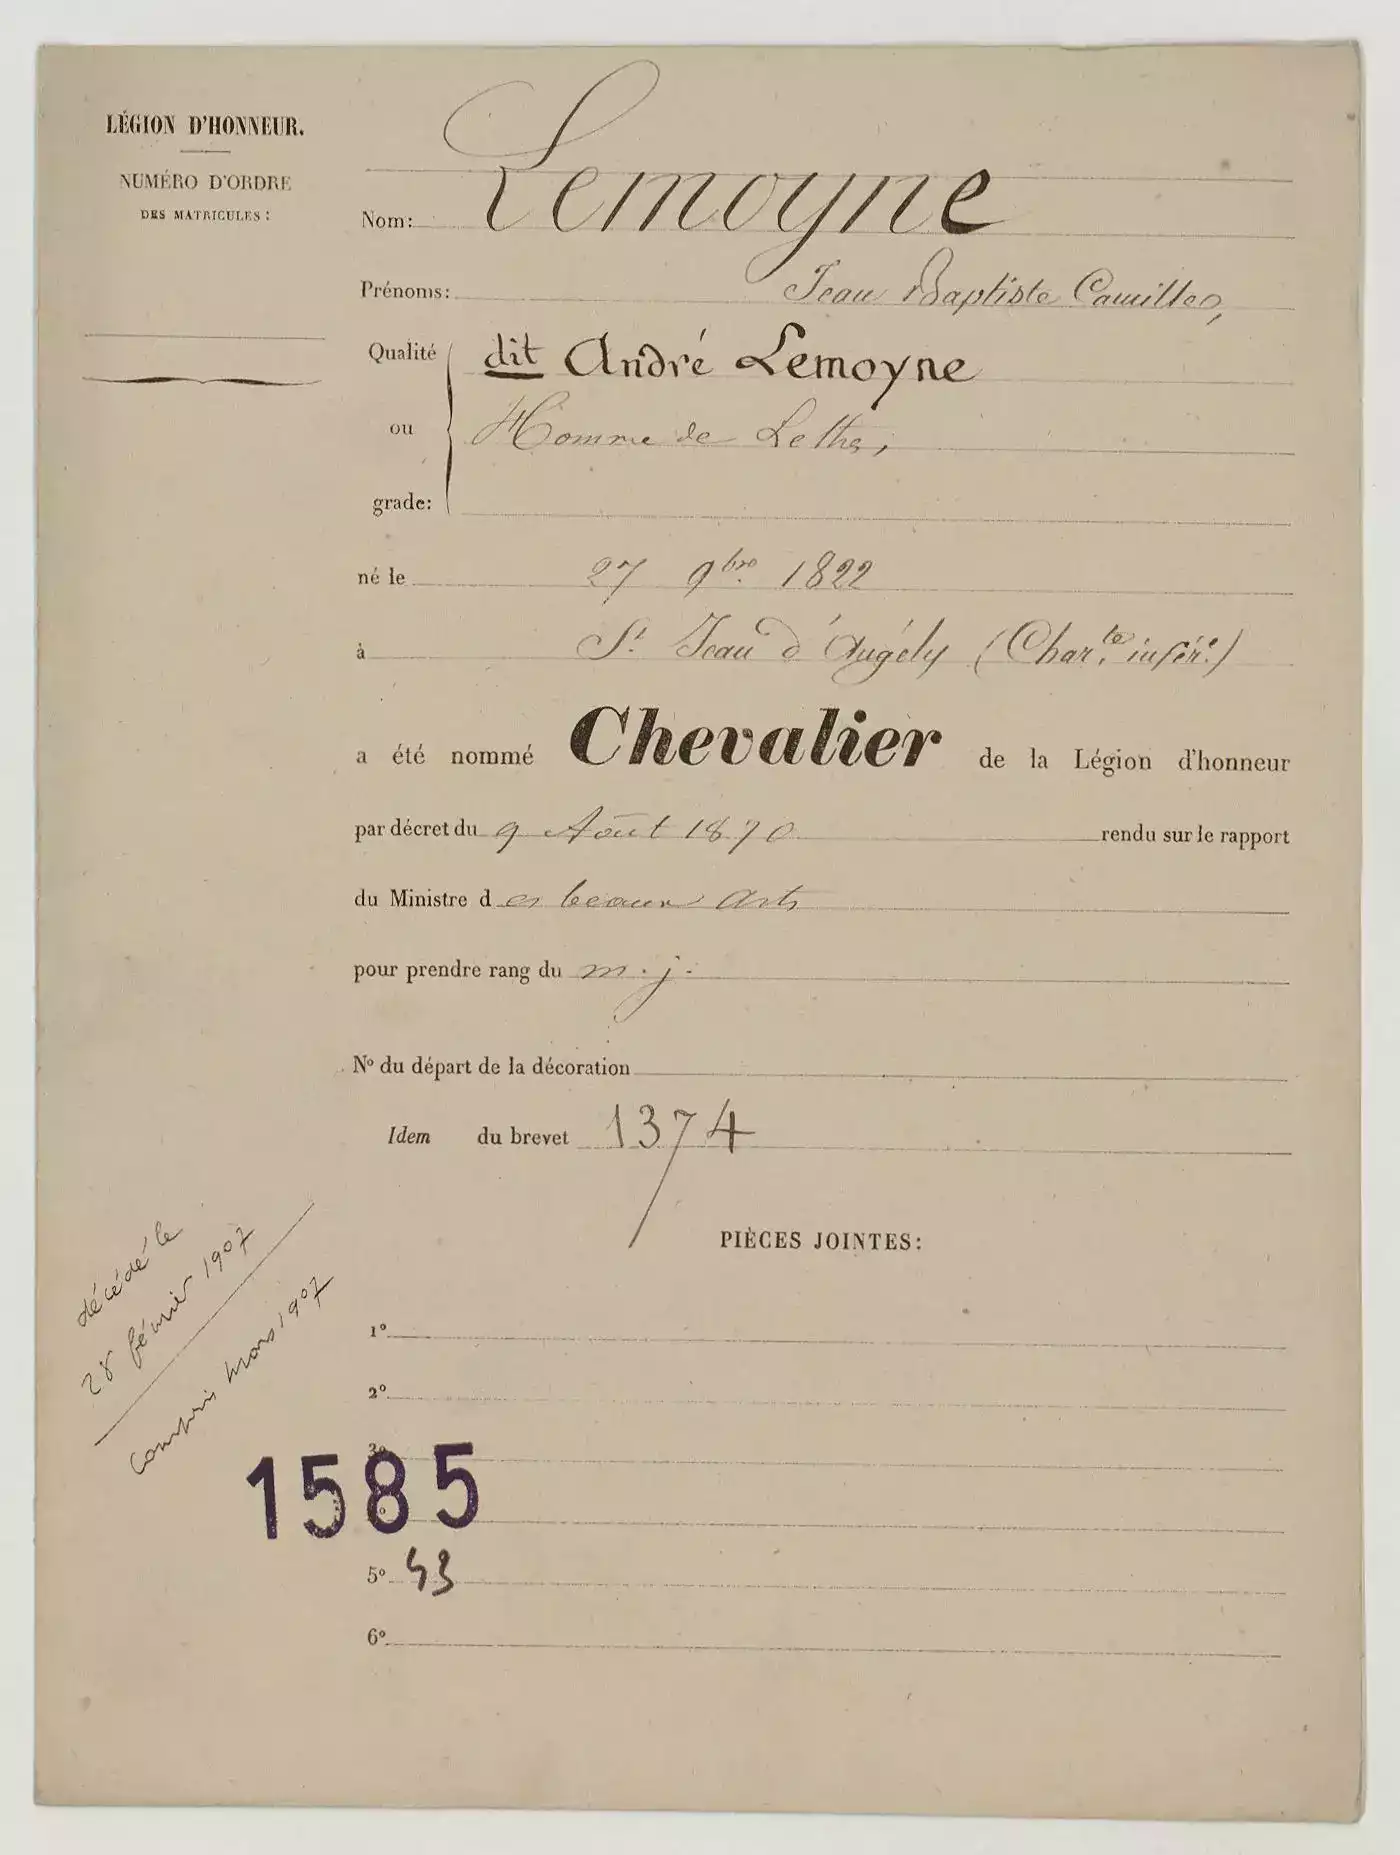 LÉGION D'HONNEUR.
NUMÉRO D'ORDRE
DES MATRICULES:
Nom: Lemoyne
Prénoms: Jean Baptiste Camille,
Qualité dit André Lemoyne
ou Homme de Lettres,
grade:
né le 27 9bre 1822
à St Jean d'Angély (Charte infére)
a été nommé Chevalier de la Légion d'honneur
par décret du 9 Août 1870 rendu sur le rapport
du Ministre des beaux arts
pour prendre rang du m. j.
No du départ de la décoration
Idem du brevet 1374
PIÈCES JOINTES:
décédé le
28 février 1907
compris mars 1907
1o
2o
3o
1585
5o 43
6o